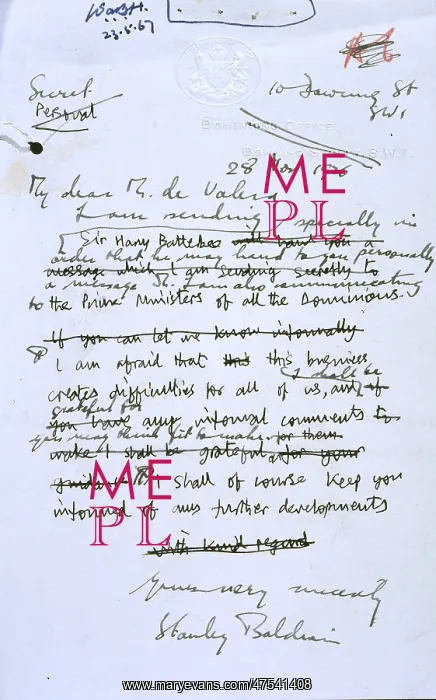 23.5.67
Secret
Personal
10 Downing St
SW1
DOMINIONS OFFICE
DOWNING STREET, S.W.1.
28 Nov 1936
My dear Mr. de Valera
I am sending specially in
Sir Harry Batterbee will hand you a
order that he may hand to you personally
message which I am sending secretly to
a message I am also communicating
to the Prime Ministers of all the Dominions.
If you can let me know informally
I am afraid that this this business
I shall be
creates difficulties for all of us, and if
grateful for
you have any informal comments to
you may think fit to make for them
make I shall be grateful for your
guidance I shall of course keep you
informed of any further developments
with kind regards
Yours very sincerely
Stanley Baldwin
ME
PL
ME
PL
www.maryevans.com/47541408